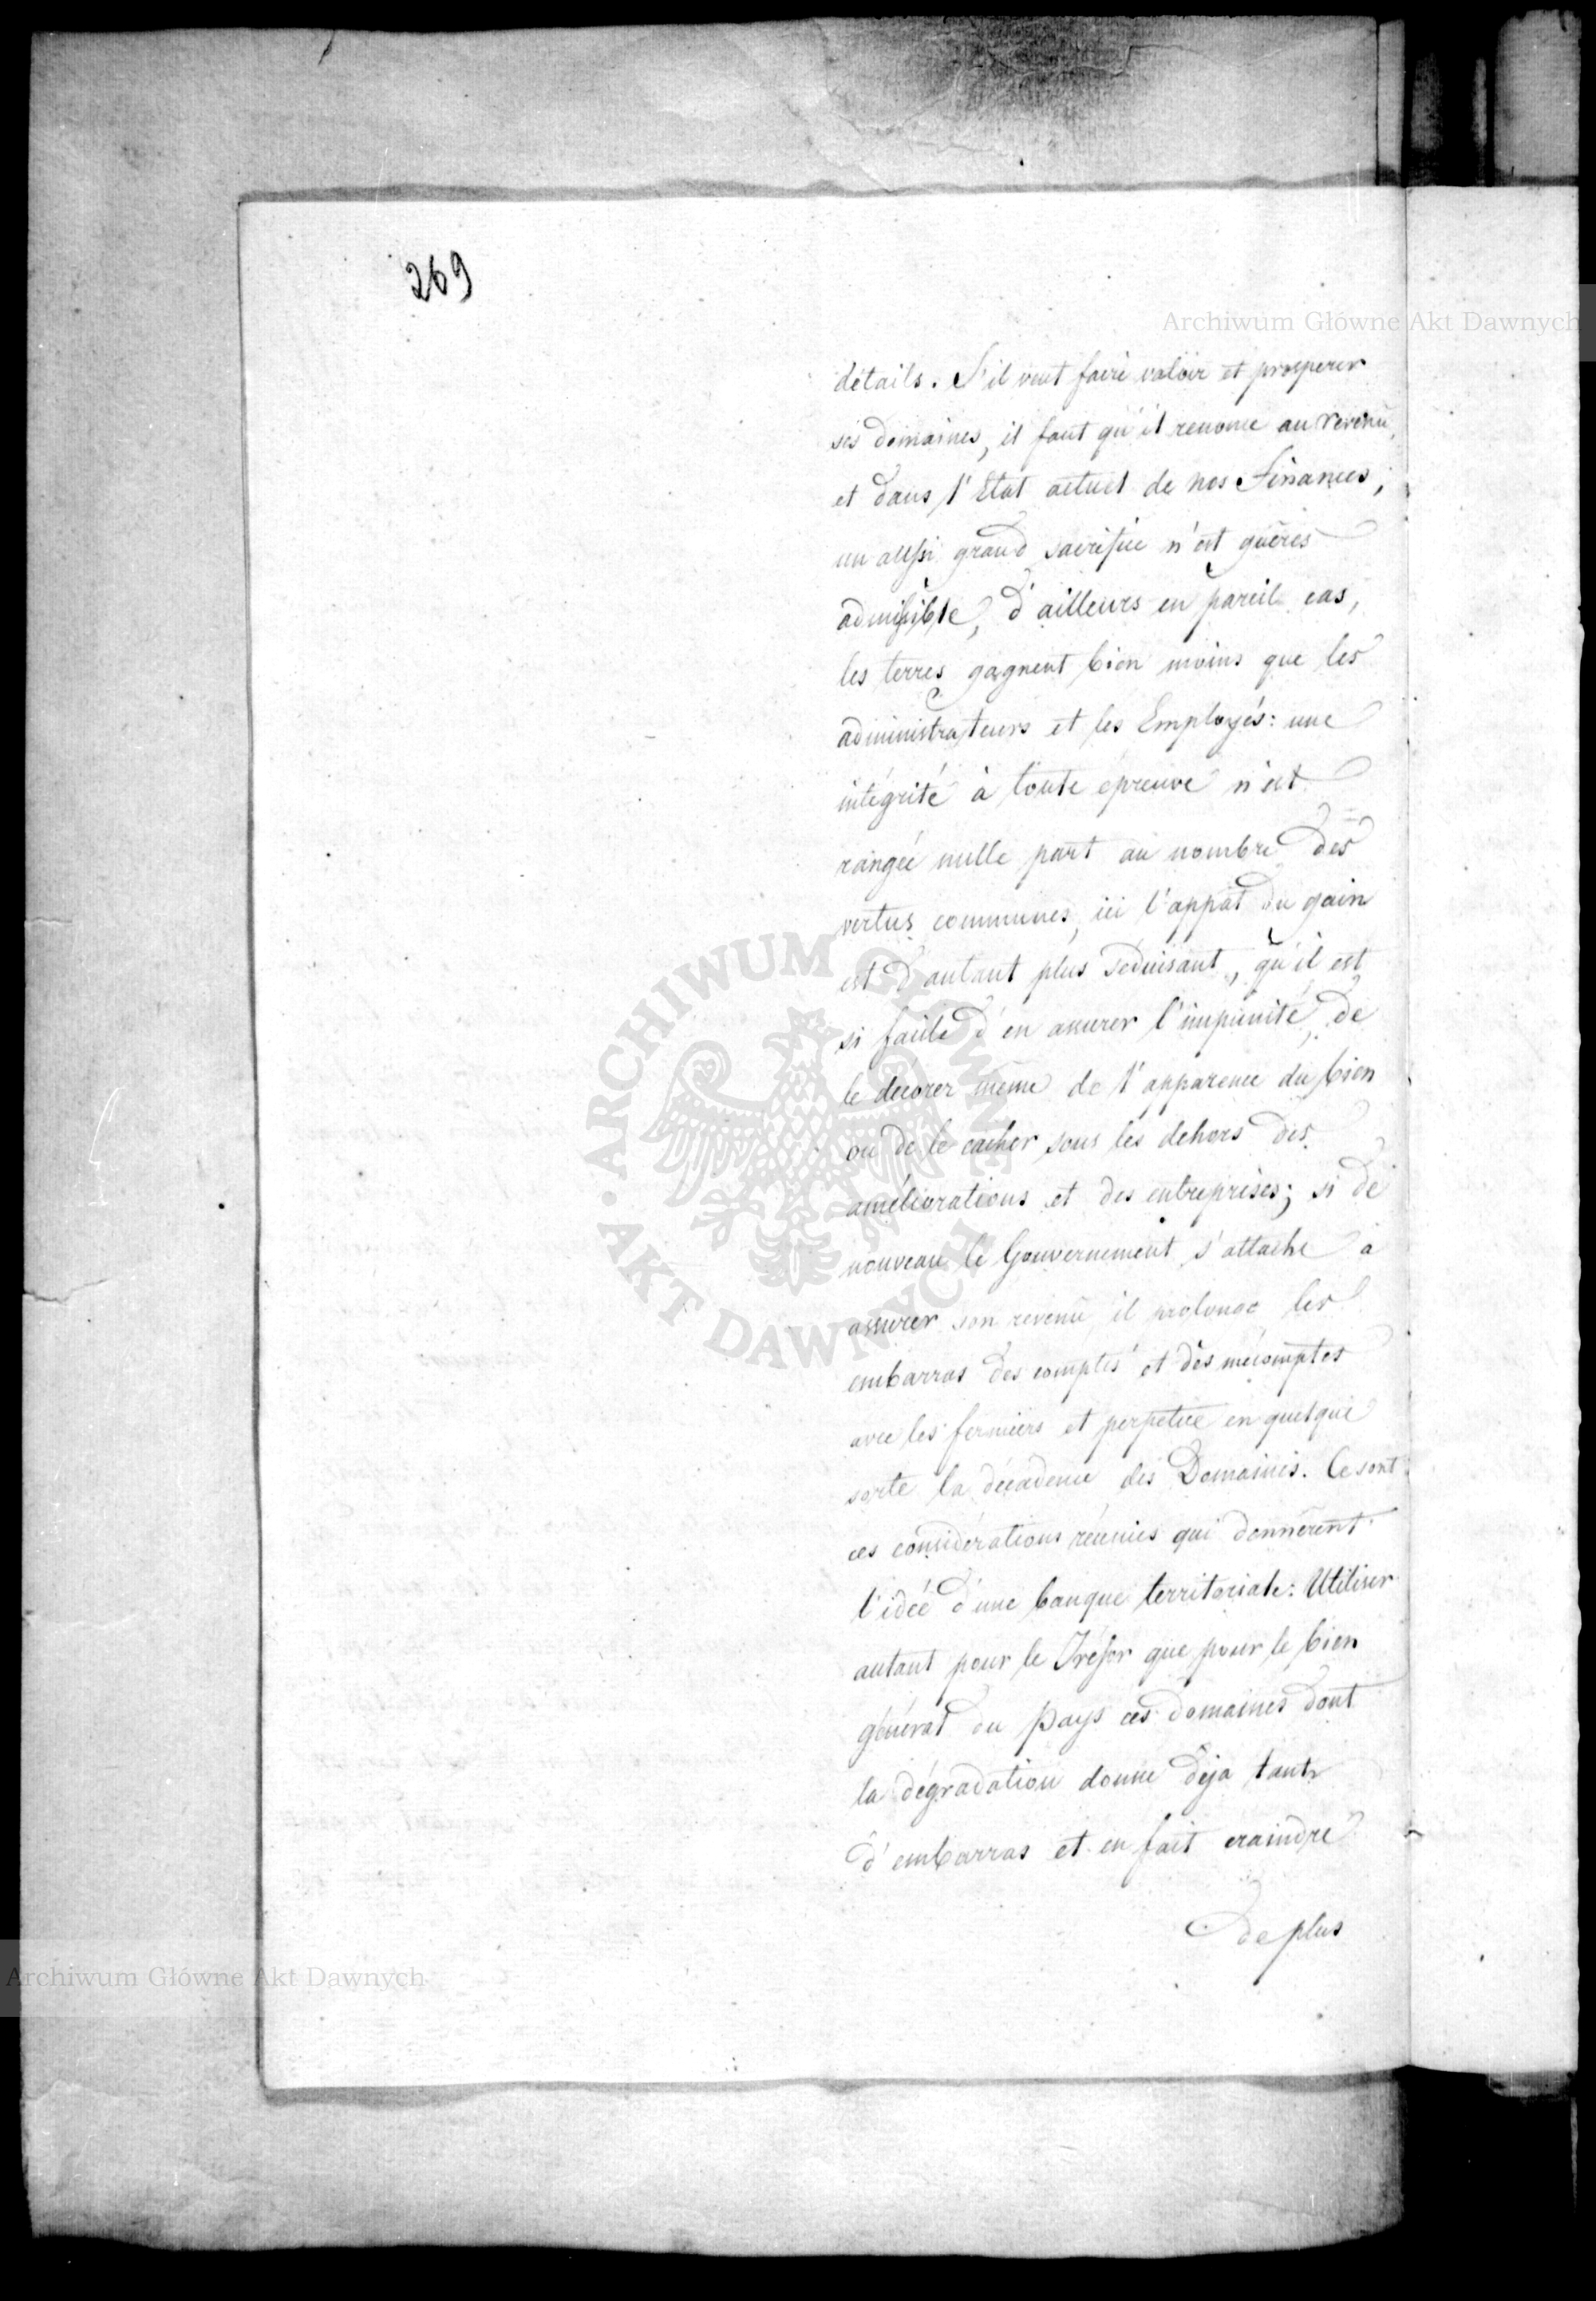 269
Archiwum Główne Akt Dawnych
détails. S'il veut faire valoir et prosperer
ses domaines, il faut qu'il renonce au revenu,
et dans l'Etat actuel de nos Finances,
un aussi grand sacrifice n'est guères
admissible, d'ailleurs en pareil cas,
les terres gagnent bien moins que les
administrateurs et les Employés: une
intégrité à toute epreuve n'est
rangée nulle part au nombre des
vertus communes, ici l'appât du gain
est d'autant plus séduisant, qu'il est
si facile d'en assurer l'impunité, de
le décorer même de l'apparence du bien
ou de le cacher sous les dehors des
améliorations et des entreprises; si de
nouveau le Gouvernement s'attache a
assurer son revenu, il prolonge les
embarras des comptes et des mécomptes
avec les fermiers et perpetue en quelque
sorte la décadence des Domaines. Ce sont
ces considérations réunies qui donnèrent
l'idée d'une banque territoriale: Utiliser
autant pour le Trésor que pour le bien
général du Pays ces domaines dont
la dégradation donne déja tant
d'embarras et en fait craindre
de plus
ARCHIWUM GŁÓWNE AKT DAWNYCH
Archiwum Główne Akt Dawnych